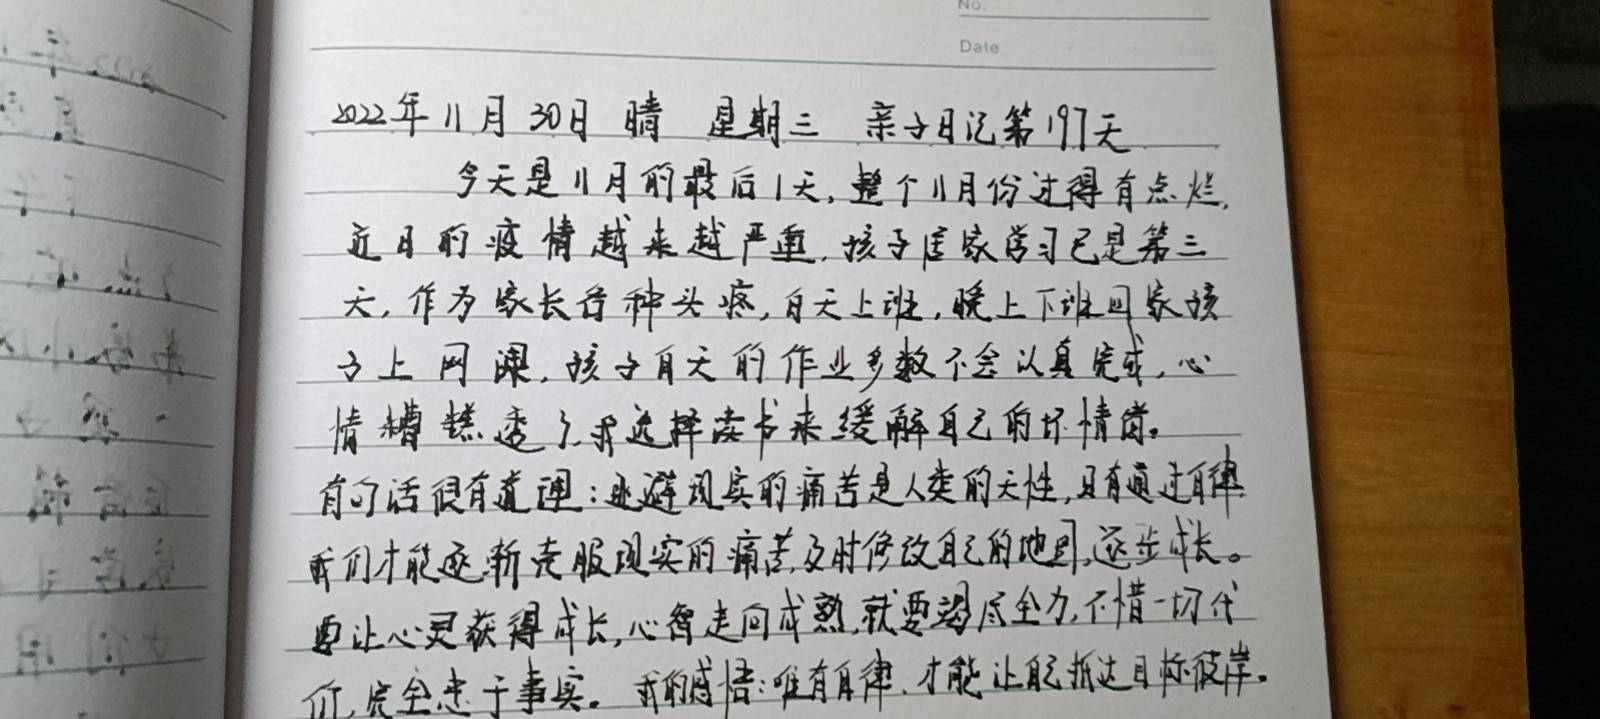 No.
Date
2022年11月30日 晴 星期三 亲子日记第197天
今天是11月的最后1天,整个11月份过得有点烂,
近日的疫情越来越严重,孩子居家学习已是第三
天,作为家长各种头疼,白天上班,晚上下班回家孩
子上网课,孩子白天的作业多数不会认真完成,心
情糟糕透了,我选择读书来缓解自己的坏情绪。
有句话很有道理:逃避现实的痛苦是人类的天性,只有通过自律
我们才能逐渐克服现实的痛苦,及时修改自己的地图,逐步成长。
要让心灵获得成长,心智走向成熟,就要竭尽全力,不惜一切代
价,完全忠于事实。我的感悟:唯有自律,才能让自己抵达目标彼岸。